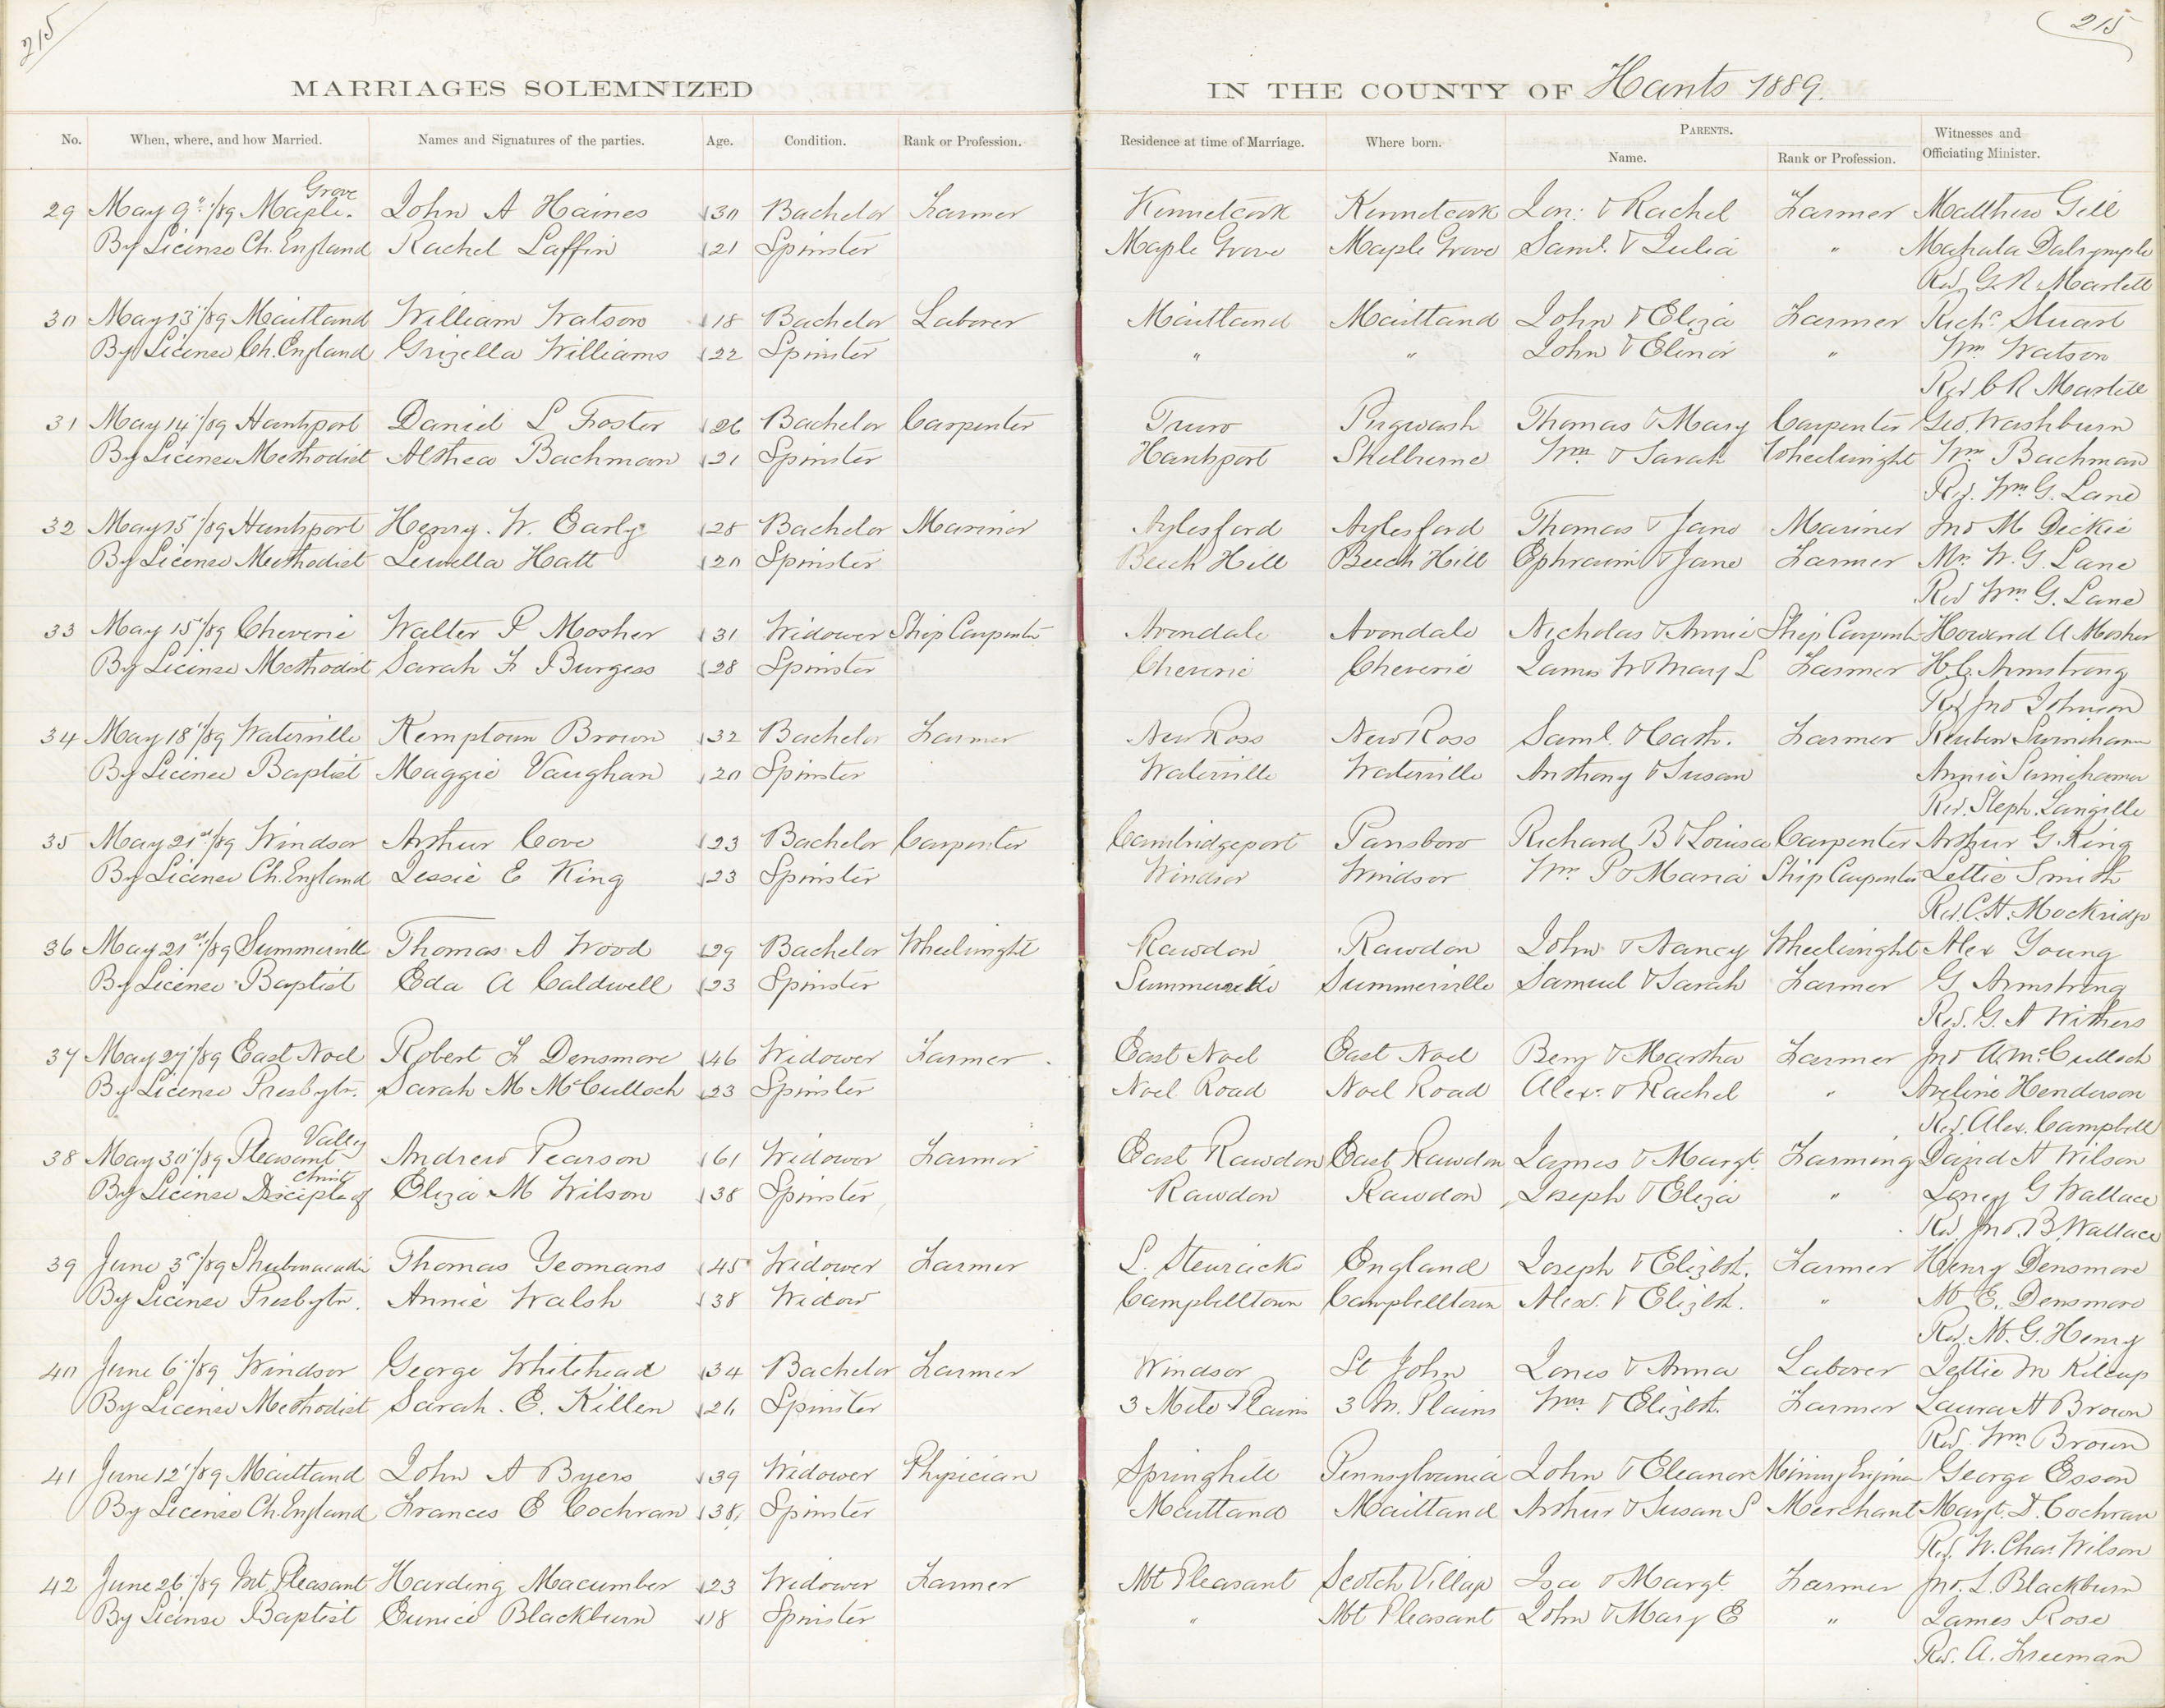 215
215
MARRIAGES SOLEMNIZED IN THE COUNTY OF Hants 1889.
No. When, where, and how Married. Names and Signatures of the parties. Age. Condition. Rank or Profession. Residence at time of Marriage. Where born. PARENTS. Name. Rank or Profession. Witnesses and Officiating Minister.
Grove
29 May 9"/89 Maple. John A Haines 30 Bachelor Farmer Kennetcook Kennetcook Jon: & Rachel Farmer Matthew Gill
By License Ch. England Rachel Laffin 21 Spinster Maple Grove Maple Grove Saml. & Julia " Mahala Dalrymple
Rev G R Martell
30 May 13"/89 Maitland William Watson 18 Bachelor Laborer Maitland Maitland John & Eliza Farmer Richd Stuart
By License Ch. England Grizella Williams 22 Spinster " " John & Elinor " Wm Watson
Rev G R Martell
31 May 14"/89 Hantsport Daniel L Foster 26 Bachelor Carpenter Truro Pugwash Thomas & Mary Carpenter Geo. Washburn
By License Methodist Althea Bachman 21 Spinster Hantsport Shelburne Wm & Sarah Wheelwright Wm Bachman
Rev. Wm G. Lane
32 May 15"/89 Hantsport Henry. W. Early 28 Bachelor Mariner Aylesford Aylesford Thomas & Jane Mariner Jno M Dickie
By License Methodist Lewella Hatt 20 Spinster Beech Hill Beech Hill Ephraim & Jane Farmer Mrs W. G. Lane
Rev Wm G. Lane
33 May 15"/89 Cheverie Walter P Mosher 31 Widower Ship Carpenter Avondale Avondale Nicholas & Annie Ship Carpent Howard A Mosher
By License Methodist Sarah F Burgess 28 Spinster Cheverie Cheverie James W & Mary L Farmer H. C. Armstrong
Rev Jno Johnson
34 May 18"/89 Waterville Kemptown Brown 32 Bachelor Farmer New Ross New Ross Saml. & Cath. Farmer Reuben
By License Baptist Maggie Vaughan 20 Spinster Waterville Waterville Anthony & Susan Annie
Rev. Steph. Langille
35 May 21st/89 Windsor Arthur Cove 23 Bachelor Carpenter Cambridgeport Parrsboro Richard B & Louisa Carpenter Arthur G King
By License Ch. England Jessie E King 23 Spinster Windsor Windsor Wm P & Maria Ship Carpenter Lettie Smith
Rev. C. H. Mockridge
36 May 21st/89 Summerville Thomas A Wood 29 Bachelor Wheelwright Rawdon Rawdon John & Nancy Wheelwright Alex Young
By License Baptist Eda A Caldwell 23 Spinster Summerville Summerville Samuel & Sarah Farmer G Armstrong
Rev. G. A Withers
37 May 27"/89 East Noel Robert F Densmore 46 Widower Farmer East Noel East Noel Benj & Martha Farmer Jno A McCulloch
By License Presbytn. Sarah M McCulloch 23 Spinster Noel Road Noel Road Alex. & Rachel " Aveline Henderson
Rev. Alex. Campbell
Valley
38 May 30"/89 Pleasant Andrew Pearson 61 Widower Farmer East Rawdon East Rawdon James & Margt. Farming David H Wilson
Christ
By License Disciple of Eliza M Wilson 38 Spinster Rawdon Rawdon Joseph & Eliza " G Wallace
Rev Jno. B Wallace
39 June 3d/89 Shubenacadie Thomas Yeomans 45 Widower Farmer L. Stewiacke England Joseph & Elizbth. Farmer Henry Densmore
By License Presbytn. Annie Walsh 38 Widow Campbelltown Campbelltown Alexr. & Elizbth. " M E. Densmore
Rev. M. G. Henry
40 June 6"/89 Windsor George Whitehead 34 Bachelor Farmer Windsor St John Jones & Anna Laborer Lettie M Kilcup
By License Methodist Sarah. E. Killen 26 Spinster 3 Mile Plains 3 M. Plains Wm & Elizbth. Farmer Laura H Brown
Rev. Wm Brown
41 June 12"/89 Maitland John A Byers 39 Widower Physician Springhill Pennsylvania John & Eleanor Mining Engineer George Esson
By License Ch. England Frances E Cochran 38 Spinster Maitland Maitland Arthur & Susan S Merchant Margt. D. Cochran
Rev. W. Chas. Wilson
42 June 26"/89 Mt. Pleasant Harding Macumber 23 Widower Farmer Mt Pleasant Scotch Village Isa & Margt. Farmer Jno. L. Blackburn
By License Baptist Eunice Blackburn 18 Spinster " Mt Pleasant John & Mary E " James Rose
Rev. A. Freeman